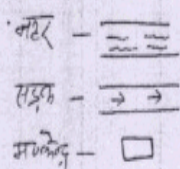 नहर -
सड़क -
मण्केन्द्र -